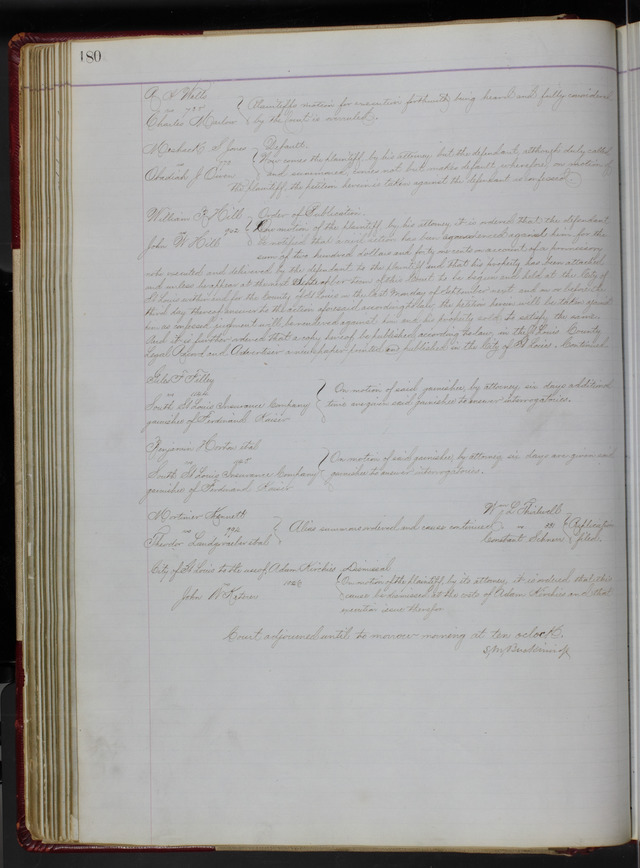 180
A. S. Wells
vs
Charles Marlow
Plaintiffs motion for execution forthwith being heard and fully considered
by the court is overruled.
S. Jones Default.
vs
Obadiah J. Owen
Now comes the plaintiff, by his attorney but the defendant, although duly called
and examined, comes not but makes default, wherefore on motion of
the plaintiff, the petition herein is taken against the defendant as confessed
William F. Hill Order of Publication.
vs 902
John W. Hill
On motion of the plaintiff by his attorney it is ordered that the defendant
be notified that a civil action has been commenced against him for the
sum of two hundred dollars and forty six cents on account of a promissory
note executed and delivered by the defendant to the plaintiff and that his property has been attached
and unless he appear at the next term of this Court to be begun and held at the City of
St Louis within and for the County of St Louis on the last Monday of September next and on or before the
third day thereof answer to the action aforesaid according to law, the petition herein will be taken against
him as confessed judgment will be rendered against him and his property sold to satisfy the same.
And it is further ordered that a copy hereof be published according to law, in the St Louis County
Legal Record and Advertiser a newspaper printed and published in the City of St Louis. Continued
Giles F. Filley
vs
South St Louis Insurance Company
garnishee of Ferdinand Kaiser
On motion of said garnishee, by attorney six days additional
time are given said garnishee to answer interrogatories.
Benjamin Horton et al
vs
South St Louis Insurance Company
garnishee of Ferdinand Kaiser
On motion of said garnishee, by attorney six days are given said
garnishee to answer interrogatories.
Mortimer Kennett
vs
Theodor et al
Alias summons ordered and cause continued
Wm L. Thilwell
vs
Constant
filed.
City of St Louis to the use of Adam Kirchies Dismissal
vs
John W.
On motion of the plaintiff, by its attorney, it is ordered that this
cause be dismissed at the costs of Adam Kirchies and that
execution issue therefor
Court adjourned until to morrow morning at ten oclock.